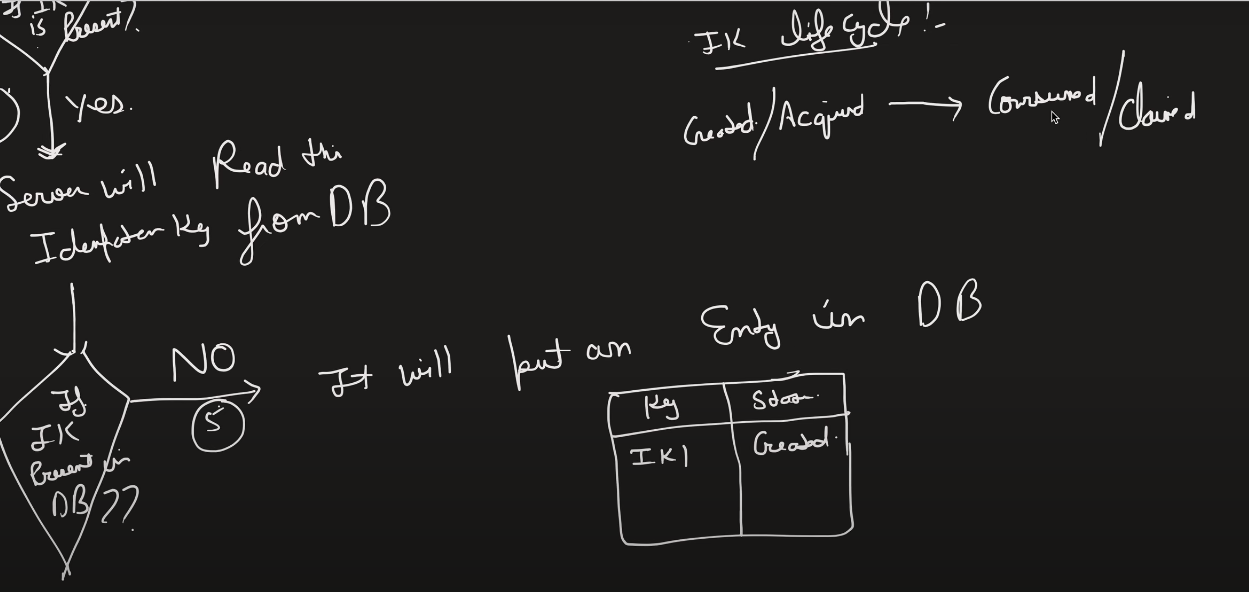 If IK
is Present?
Yes.
Server will Read this
Idenpoten Key from DB
If
IK
Present in
DB??
NO
5
It will put an Entry in DB
Key Status
IK1 Created.
IK life Cycle!-
Created/Acquired → Consumed/Claimed